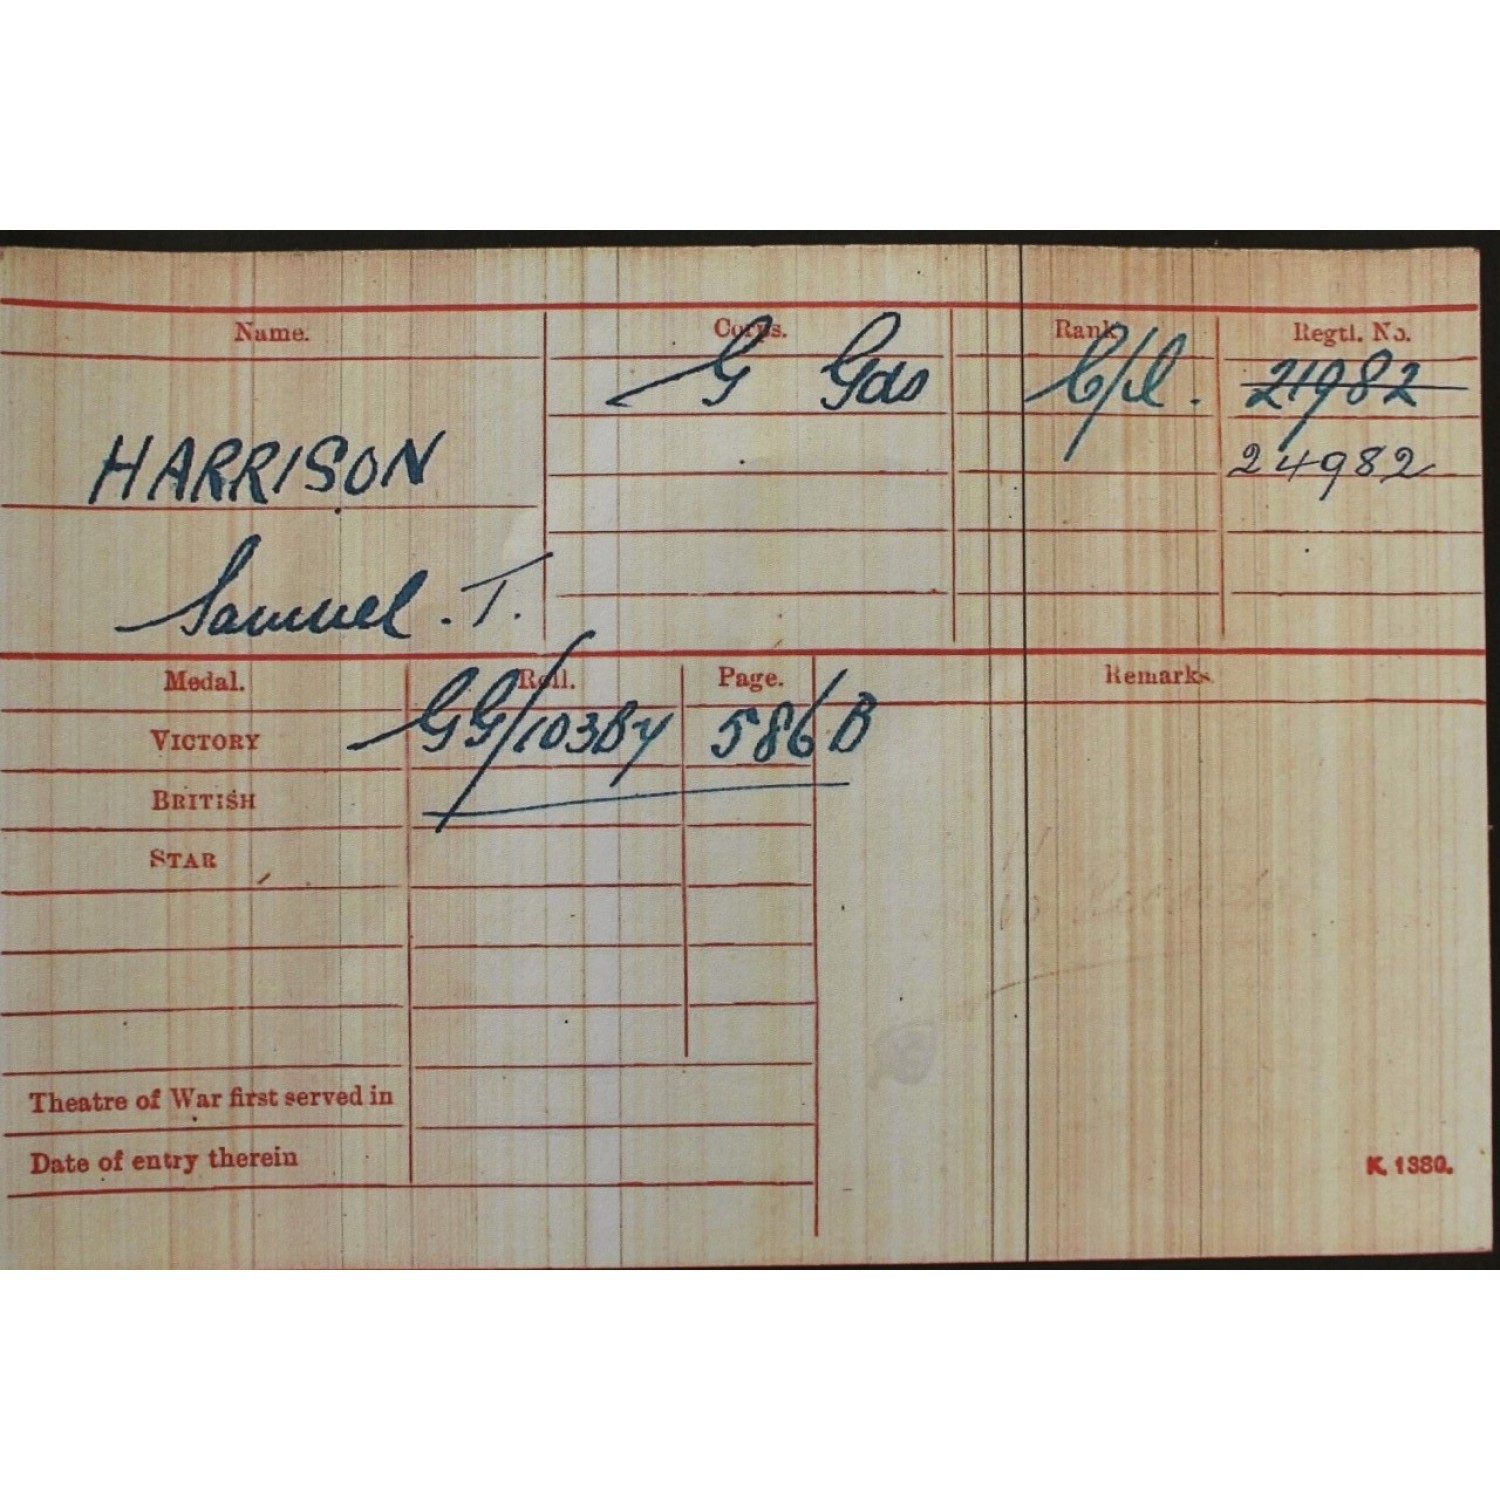 Name. Corps. Rank Regtl. No.
G Gds C/pl. 21982
24982
HARRISON
Samuel. T.
Medal. Roll. Page. Remarks.
VICTORY GG/103By 586B
BRITISH
STAR
Theatre of War first served in
Date of entry therein
K. 1380.